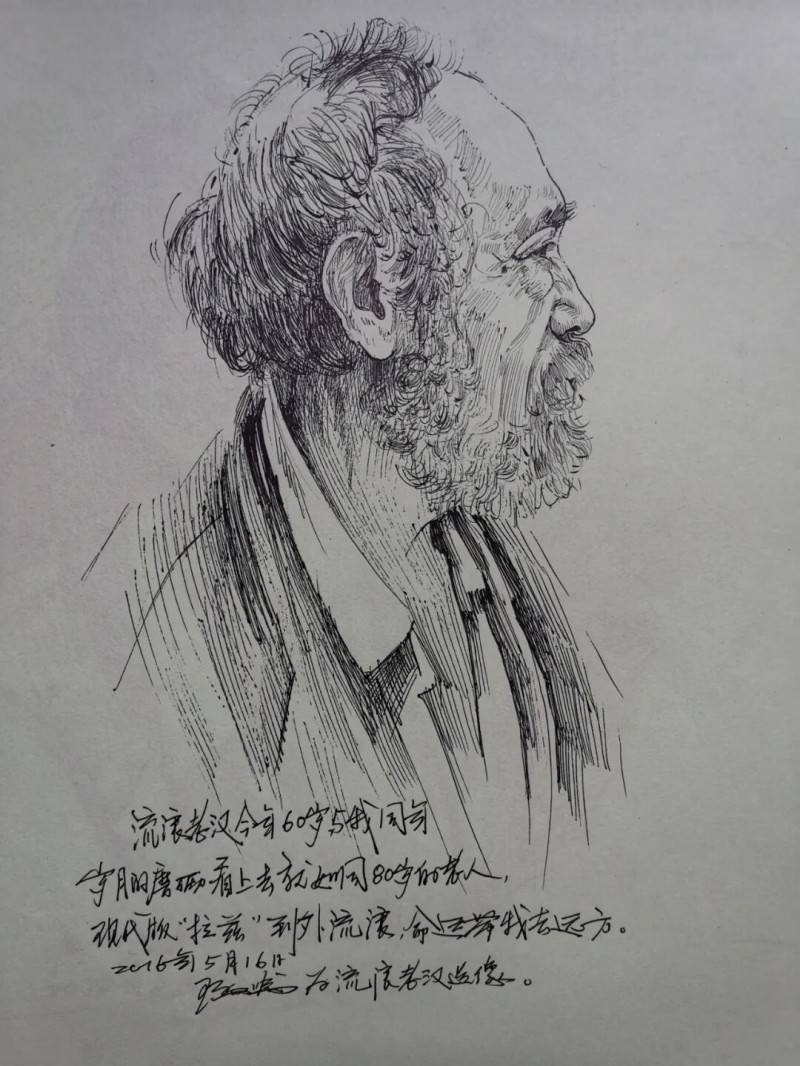 流浪老汉今年60岁与我同年
岁月的磨砺看上去就如同80岁的老人，
现代版“拉兹”到外流浪，命运带我去远方。
2016年5月16日
为流浪老汉造像。